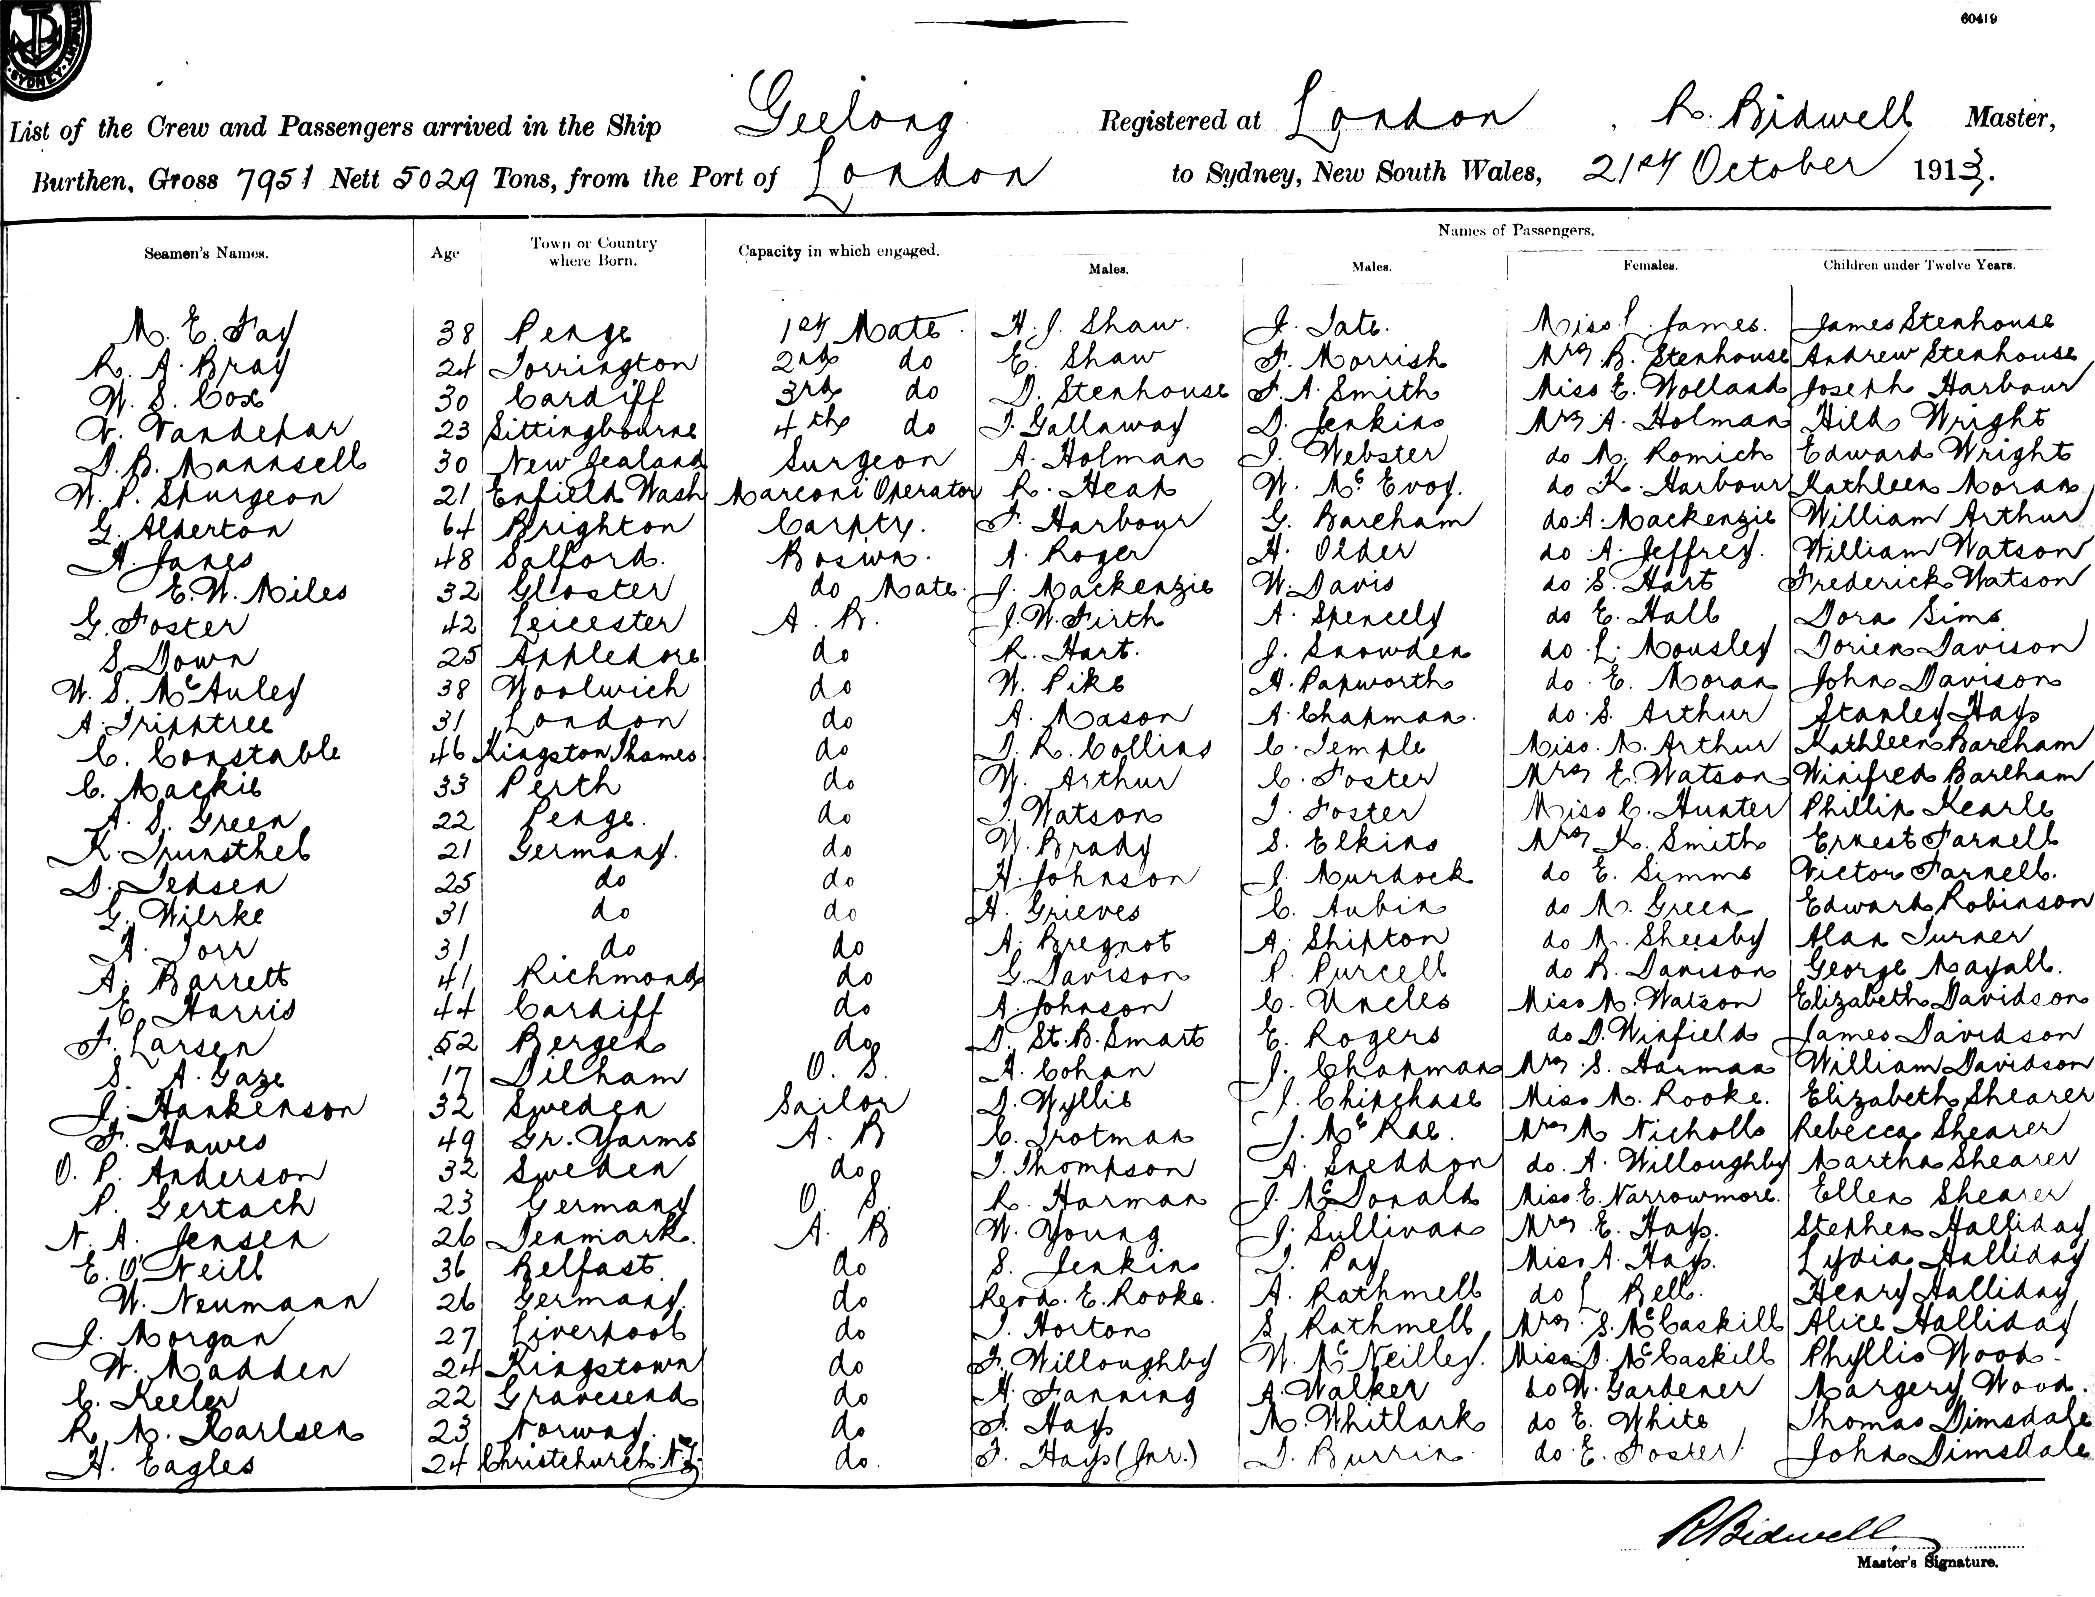 60419
SYDNEY
List of the Crew and Passengers arrived in the Ship Geelong Registered at London , R. Bidwell Master,
Burthen, Gross 7951 Nett 5029 Tons, from the Port of London to Sydney, New South Wales, 21st October 1913.
Names of Passengers.
Seamen's Names. Age Town or Country where Born. Capacity in which engaged. Males. Males. Females. Children under Twelve Years.
M. E. Fay 38 Penge 1st Mate H. J. Shaw. J. Tate. Miss L. James. James Stenhouse
R. A. Bray 24 Torrington 2nd do E. Shaw F. Morrish Mrs B. Stenhouse Andrew Stenhouse
W. S. Cox 30 Cardiff 3rd do D. Stenhouse F. A. Smith Miss E. Wolland Joseph Harbour
V. Vandepar 23 Sittingbourne 4th do T. Gallaway D. Jenkins Mrs A. Holman Hild Wright
D. B. Mannsell 30 New Zealand Surgeon A. Holman T. Webster do M. Romich Edward Wright
W. P. Spurgeon 21 Enfield Wash Marconi Operator R. Heap W. McEvoy. do K. Harbour Kathleen Moran
G. Alderton 64 Brighton Carptr. F. Harbour G. Bareham do A. Mackenzie William Arthur
A. Janes 48 Salford. Boswn. A. Roger H. Older do A. Jeffrey. William Watson
E. W. Miles 32 Gloster do Mate. J. Mackenzie W. Davis do S. Hart Frederick Watson
G. Foster 42 Leicester A. B. J. W. Firth A. Spencely do E. Hall Dora Sims
S. Down 25 Appledore do R. Hart. J. Snowden do L. Mousley Dorien Davison
W. S. McAuley 38 Woolwich do W. Pike A. Papworth do E. Moran John Davison
A. Tripptree 31 London do A. Mason A. Chapman. do S. Arthur Stanley Hays
C. Constable 46 Kingston Thames do D. R. Collins C. Temple Miss. M. Arthur Kathleen Bareham
C. Mackie 33 Perth do W. Arthur C. Foster Mrs E. Watson Winifred Bareham
A. S. Green 22 Penge. do T. Watson T. Foster Miss C. Hunter Phillip Kearle
K. Trunsthel 21 Germany. do W. Brady S. Elkins Mrs K. Smith Ernest Farnell
D. Jensen 25 do do H. Johnson J. Murdock do E. Simms Victor Farnell.
G. Wierke 31 do do H. Grieves C. Aubin do M. Green Edward Robinson
A. Torr 31 do do A. Bregnot A. Shipton do M. Sheesby Alan Turner
A. Barrett 41 Richmond do G. Davison P. Purcell do B. Davison George Mayall.
E. Harris 44 Cardiff do A. Johnson C. Uncles Miss M. Watson Elizabeth Davidson
F. Larsen 52 Bergen do D. St. B. Smart E. Rogers do D. Winfield James Davidson
S. A. Gaze 17 Dilham O. S. A. Cohan J. Chapman Mrs S. Harman William Davidson
J. Hankenson 32 Sweden Sailor D. Wyllie J. Chipchase Miss M. Rooke. Elizabeth Shearer
F. Hawes 49 Gr. Yarms A. B C. Trotman J. McRae. Mrs M Nicholls Rebecca Shearer
O. P. Anderson 32 Sweden do T. Thompson A. Sneddon do. A. Willoughby Martha Shearer
P. Gertach 23 Germany O. S. R. Harman J. McDonald Miss E. Narrowmore. Ellen Shearer
N. A. Jensen 26 Denmark. A. B W. Young J. Sullivan Mrs E. Hays. Stephen Halliday
E. O'Neill 36 Belfast. do S. Jenkins T. Pay Miss A. Hays. Lydia Halliday
W. Neumann 26 Germany. do Revd. E. Rooke. A. Rathmell do L Bell. Henry Halliday
J. Morgan 27 Liverpool do T. Horton S. Rathmell Mrs. S. McCaskill Alice Halliday
W. Madden 24 Kingstown do F. Willoughby W. McNeilley. Miss D. McCaskill Phyllis Wood.
C. Keeler 22 Gravesend do H. Fanning A. Walker do W. Gardener Margery Wood.
R. M. Karlsen 23 Norway. do F. Hays M. Whitlark do E. White Thomas Dimsdale
H. Eagles 24 Christchurch N.Z. do. F. Hays (Jnr.) T. Burrin do E. Foster John Dimsdale
R Bidwell
Master's Signature.